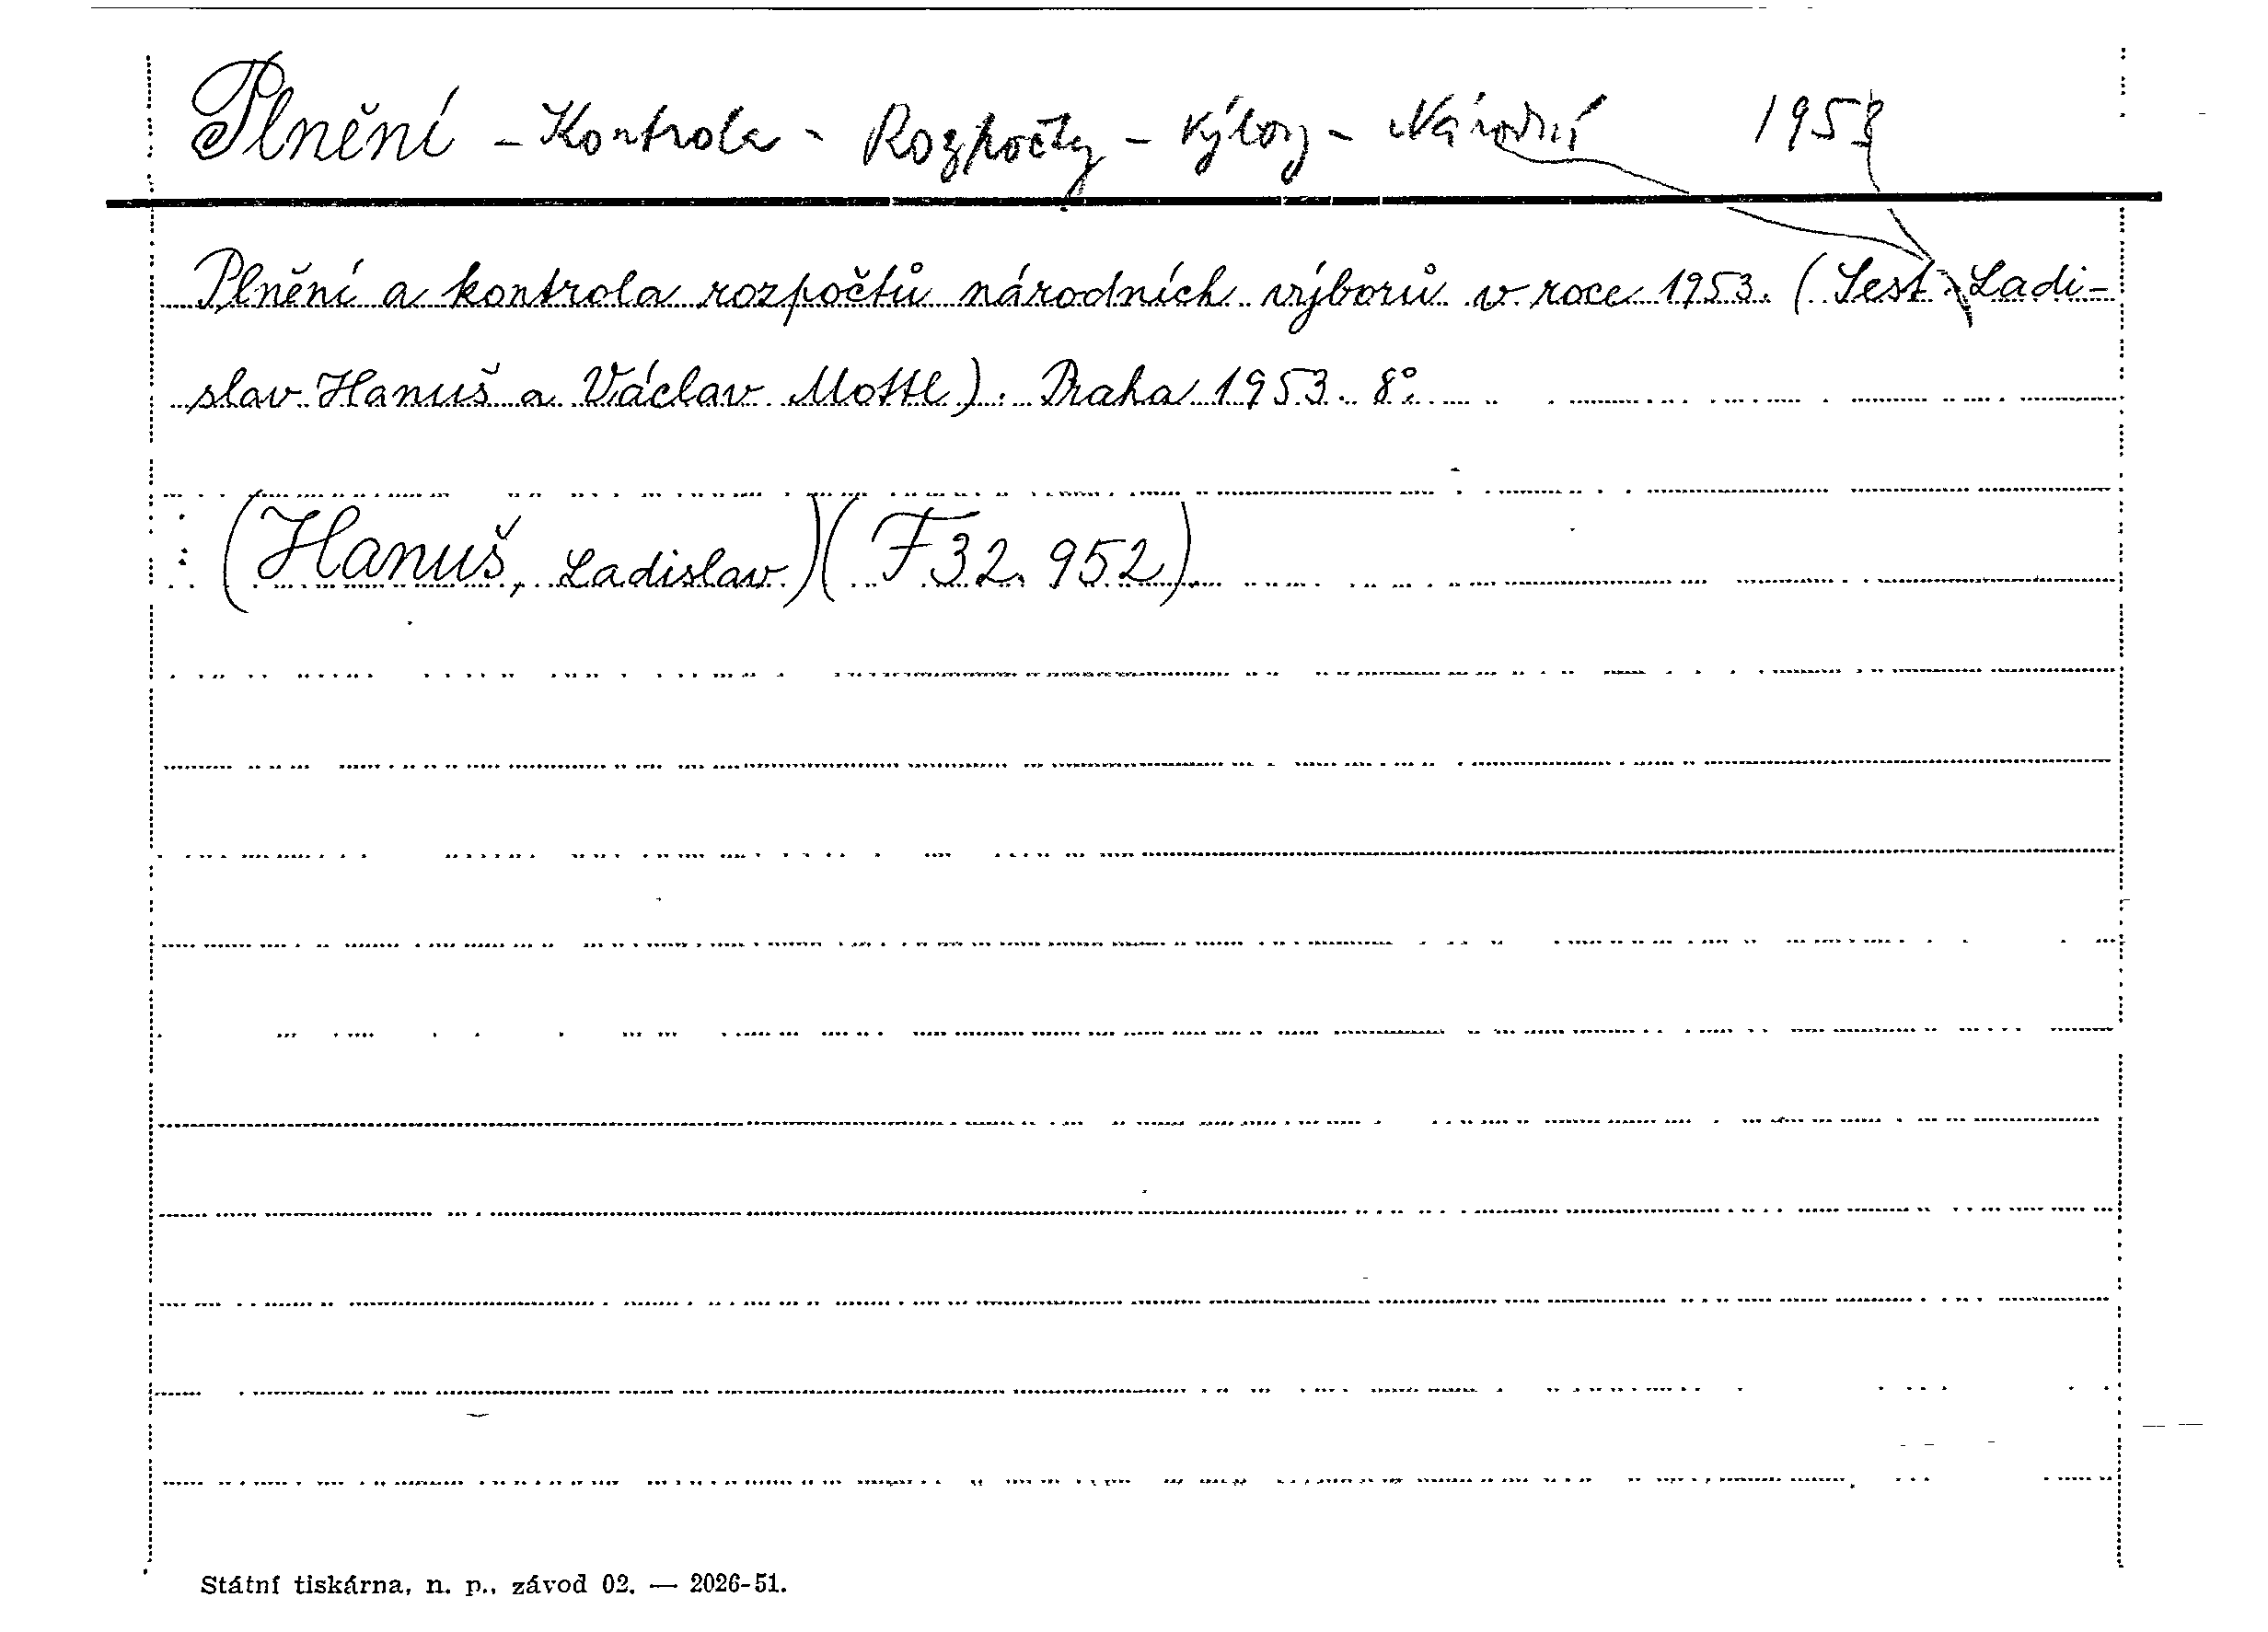 Plnění - Kontrola - Rozpočty - Výbory - Národní 1953
Plnění a kontrola rozpočtů národních výborů v roce 1953. (Sest. Ladi-
slav Hanuš a Václav Mottl). Praha 1953. 8°.
(Hanuš, Ladislav) (F 32.952)
Státní tiskárna, n. p., závod 02. — 2026-51.